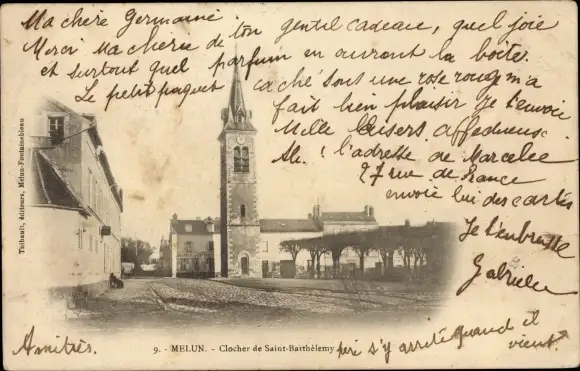 Ma chère Germaine
Merci Ma chérie de ton gentil cadeau, quel joie
et surtout quel parfum en ouvrant la boîte.
Le petit paquet caché sous une rose rouge m'a
fait bien plaisir Je t'envoie
Mille baisers affectueux.
Ah! l'adresse de Marcelle
27 rue de France
envoie lui des cartes
Je t'embrasse
Gabrielle
Thibault, éditeurs, Melun-Fontainebleau
9. - MELUN. - Clocher de Saint-Barthélemy
s'y arrêté quand il
vient.
Amitiés.